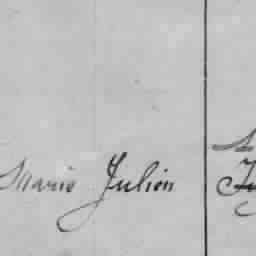 Marie Julien